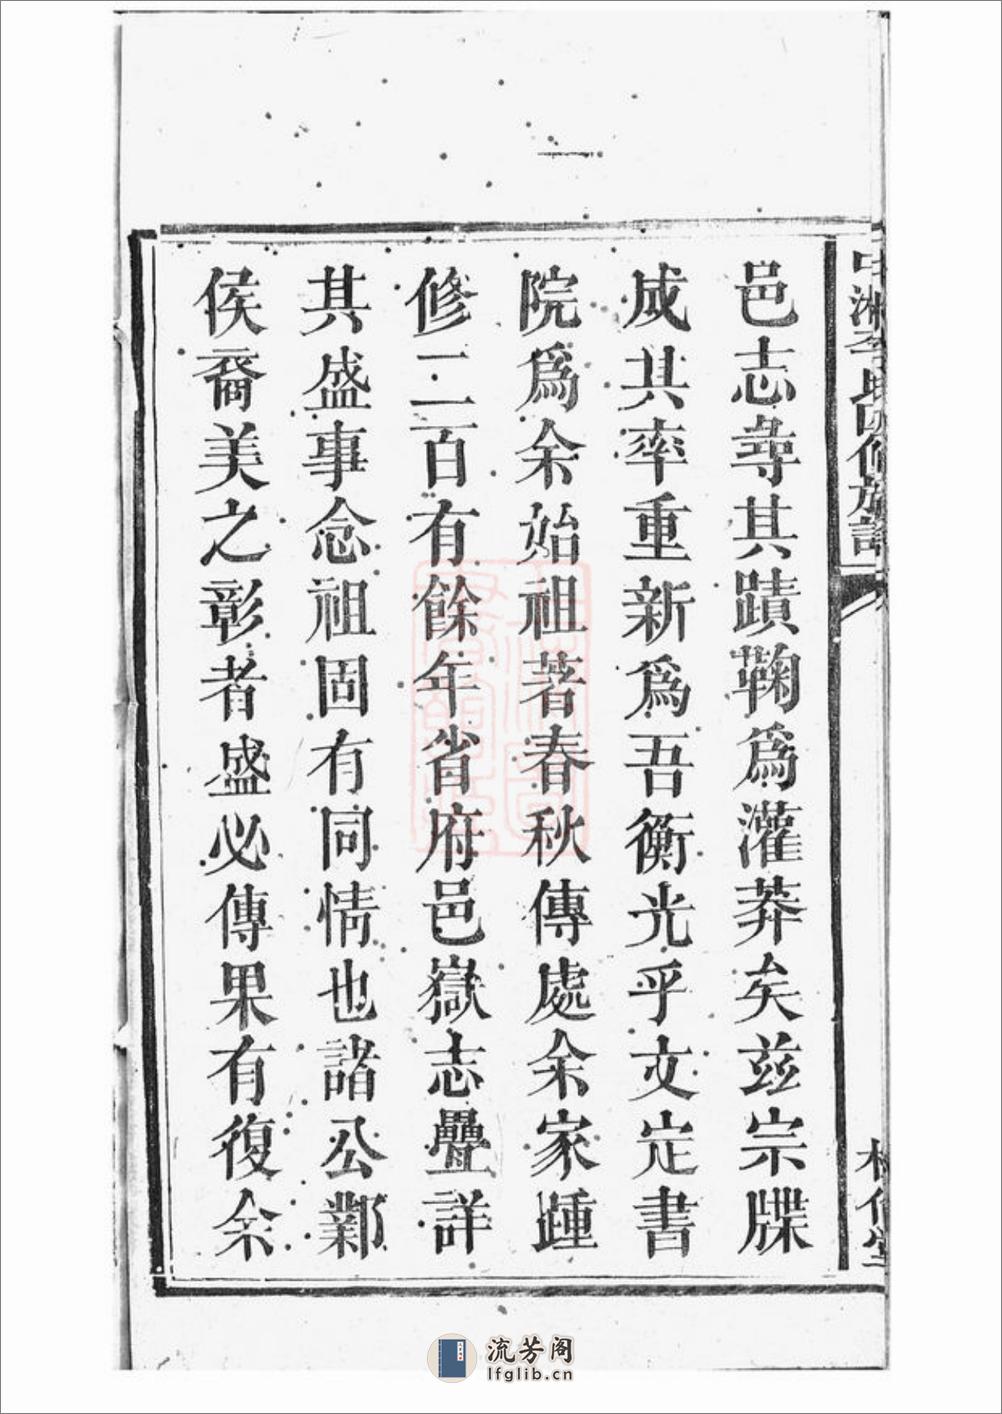 中湘李氏四修族譜
邑志尋其蹟鞠爲灌莽矣兹宗牒
成其率重新爲吾衡光乎文定書
院爲余始祖著春秋傳處余家踵
修二百有餘年省府邑嶽志疊詳
其盛事念祖固有同情也諸公鄴
侯裔美之彰者盛必傳果有復余
流芳阁
lfglib.cn